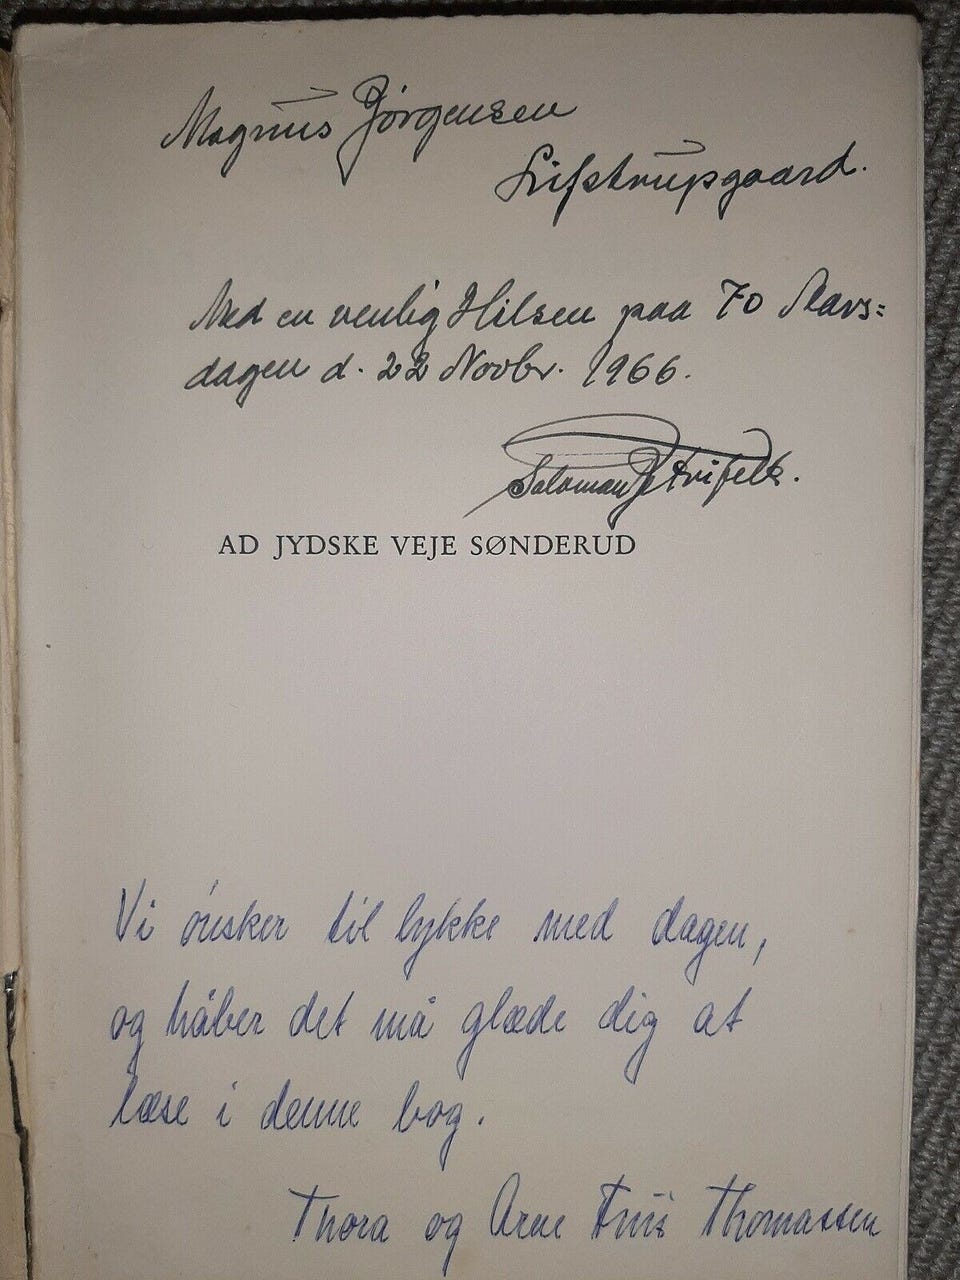 Magnus Jørgensen
Lifstrupgaard.
Med en venlig Hilsen paa 70 Aars=
dagen d. 22 Novbr. 1966.
Salomon J. Frifelt.
AD JYDSKE VEJE SØNDERUD
Vi ønsker til lykke med dagen,
og håber det må glæde dig at
læse i denne bog.
Thora og Arne Friis Thomassen